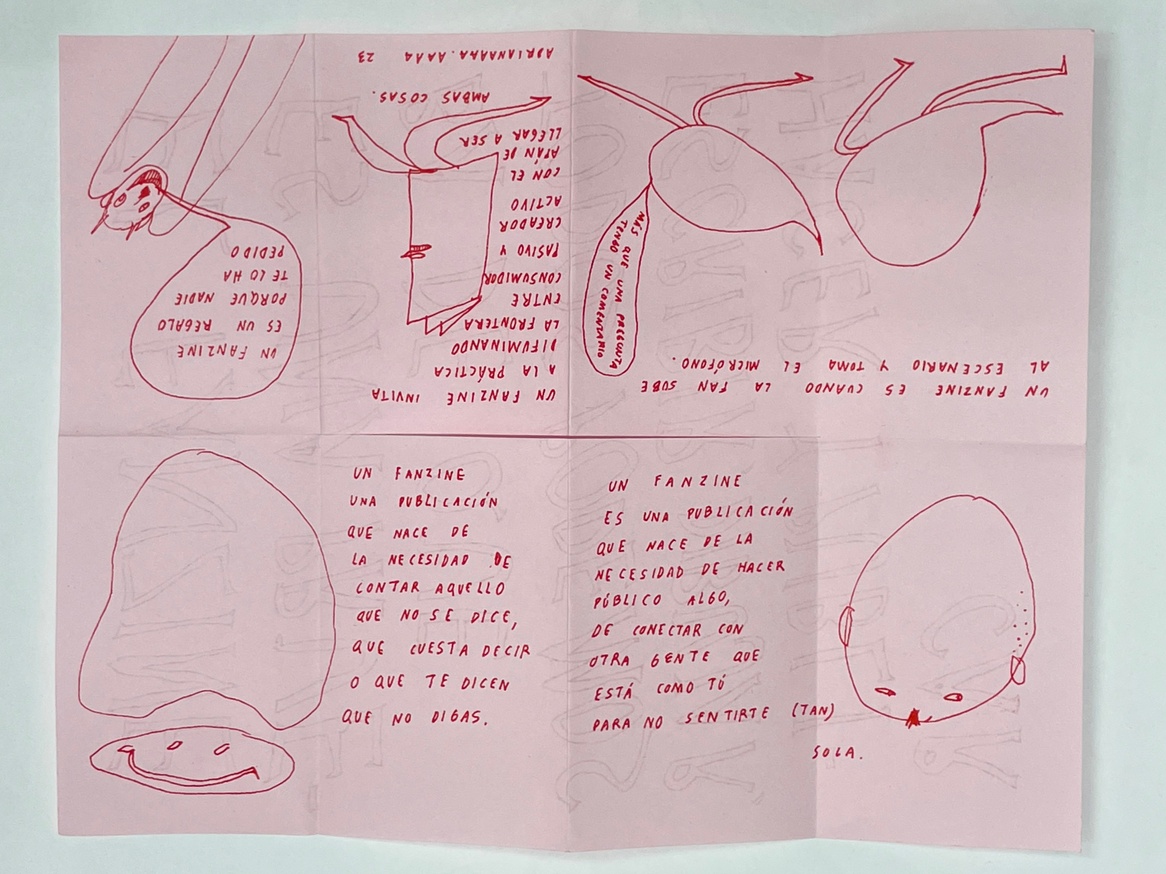 UN FANZINE
ES UN REGALO
PORQUE NADIE
TE LO HA
PEDIDO
UN FANZINE INVITA
A LA PRÁCTICA
DIFUMINANDO
LA FRONTERA
ENTRE
CONSUMIDOR
PASIVO Y
CREADOR
ACTIVO
CON EL
AFÁN DE
LLEGAR A SER
AMBAS COSAS.
ADRIANAAAA.AAAA 23
UN FANZINE ES CUANDO LA FAN SUBE
AL ESCENARIO Y TOMA EL MICRÓFONO.
MÁS QUE UNA PREGUNTA
TENGO UN COMENTARIO
UN FANZINE
UNA PUBLICACIÓN
QUE NACE DE
LA NECESIDAD DE
CONTAR AQUELLO
QUE NO SE DICE,
QUE CUESTA DECIR
O QUE TE DICEN
QUE NO DIGAS.
UN FANZINE
ES UNA PUBLICACIÓN
QUE NACE DE LA
NECESIDAD DE HACER
PÚBLICO ALGO,
DE CONECTAR CON
OTRA GENTE QUE
ESTÁ COMO TÚ
PARA NO SENTIRTE (TAN)
SOLA.